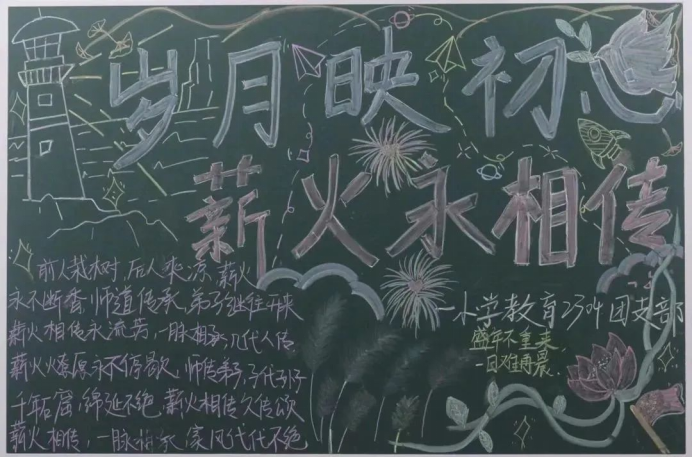 岁月映初心
薪火永相传
前人栽树,后人乘凉,薪火
永不断香,师道传承,弟子继往开来
薪火相传永流芳,一脉相承,几代人传
薪火燎原永不停歇,师传弟子,子代子
千年石窟,绵延不绝,薪火相传久传颂
薪火相传,一脉相承,家风代代不绝
—小学教育2314团支部
盛年不重来
一日难再晨